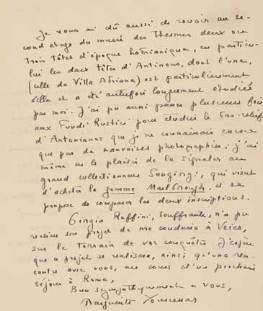 Je vous ai dû aussi de revoir au se-
cond étage du musée des Thermes deux ou
trois têtes d'époque hadrianique, en particu-
lier les deux têtes d'Antinoüs, dont l'une,
(celle de Villa Adriana) est particulièrement
belle et a été autrefois longuement étudiée
par moi. J'ai pu aussi passer plusieurs fois
aux Fondi Rustici pour étudier le bas-relief
d'Antonianos que je ne connaissais encore
que par de mauvaises photographies. J'ai
même eu le plaisir de la signaler au
grand collectionneur Sangiorgi, qui vient
d'acheter la gemme Marlborough, et se
propose de comparer les deux inscriptions.
Giorgio Ruffini, souffrante, n'a pu
projet de me conduire à Veies,
sur le terrain de vos conquêtes. J'espère
que ce projet se réalisera, ainsi qu'une ren-
contre avec vous, au cours d'un prochain
séjour à Rome.
Bien sympathiquement à vous,
Marguerite Yourcenar